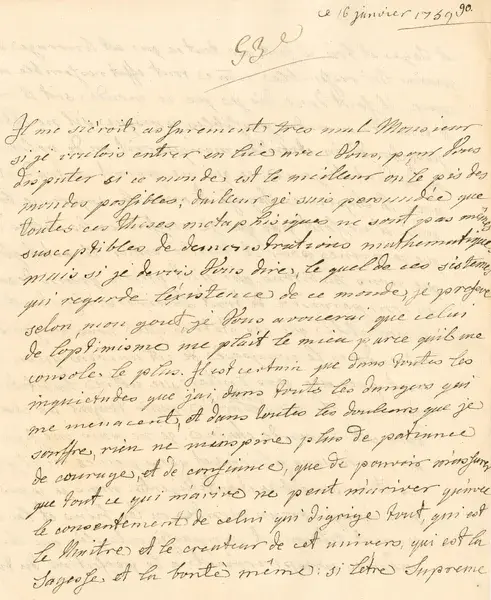 ce 16 janvier 1759 90.
G3e
Il me siéroit assurement tres mal Monsieur
si je voulois entrer en lice avec Vous, pour Vous
disputer si ce monde est le meilleur ou le pis des
mondes possibles; dailleur je suis persuadée que
toutes ces Thises metaphisiques ne sont pas même
susceptibles de demonstrations mathematiques,
mais si je devois Vous dire, le quel de ces sisteme,
qui regarde l'existence de ce monde, je prefere
selon, mon gout, je Vous avouerai que celui
de l'optimisme me plait le mieu parce qu'il me
console le plus. Il est certain que dans toutes les
inquietudes que j'ai, dans touts les dangers qui
me menacent, et dans toutes les douleurs que je
souffre, rien ne m'inspire plus de patiance
de courage, et de confiance, que de pouvoir m'assurer,
que tout ce qui m'arive ne peut m'ariver qu'avec
le consentement de celui qui digrige tout, qui est
le Maitre et le createur de cet univers, qui est la
Sagesse et la bonté même: si lêtre Supreme